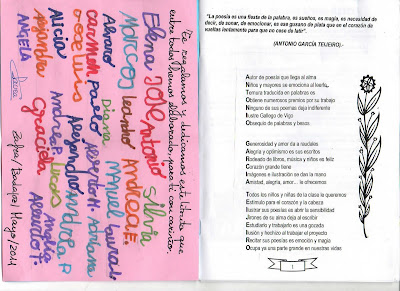 Te regalamos y dedicamos este librito que
entre todos hemos elaborado para ti con cariño.
Elena JOSE Antonio Silvia
MARCOS Leandro Andrea E.
Álvaro Diana Manuel Laura
CARMEN Paolo
JOSE LUIS Alejandro ANDREA P.
Alicia Andrea P. Lucas
Alejandra Graciela
ANGELA
Zafra/Badajoz/Mayo/2011
"La poesía es una flauta de la palabra, es sueños, es magia, es necesidad de
decir, de sonar, de emocionar, es ese gusano de plata que en el corazón da
vueltas lentamente para que no cese de latir".
(ANTONIO GARCÍA TEIJEIRO).
Autor de poesía que llega al alma
Niños y mayores se emociona al leerla.
Ternura traducida en palabras es
Obtiene numerosos premios por su trabajo
Ninguno de sus poemas deja indiferente
Ilustre Gallego de Vigo
Obsequio de palabras y besos.
Generosidad y amor da a raudales
Alegría y optimismo es sus escritos
Rodeado de libros, música y niños es feliz
Corazón grande tiene
Imágenes e ilustración se dan la mano
Amistad, alegría, amor… le ofrecemos
Todos los niños y niñas de la clase le queremos
Estímulo para el corazón y la cabeza
Ilustrar sus poesías es abrir la sensibilidad
Jirones de su alma deja al escribir
Estudiarlo y trabajarlo es una gozada
Ilusión y hechizo al trabajar el proyecto
Recitar sus poesías es emoción y magia
Ocupa ya una parte grande en nuestras vidas
1